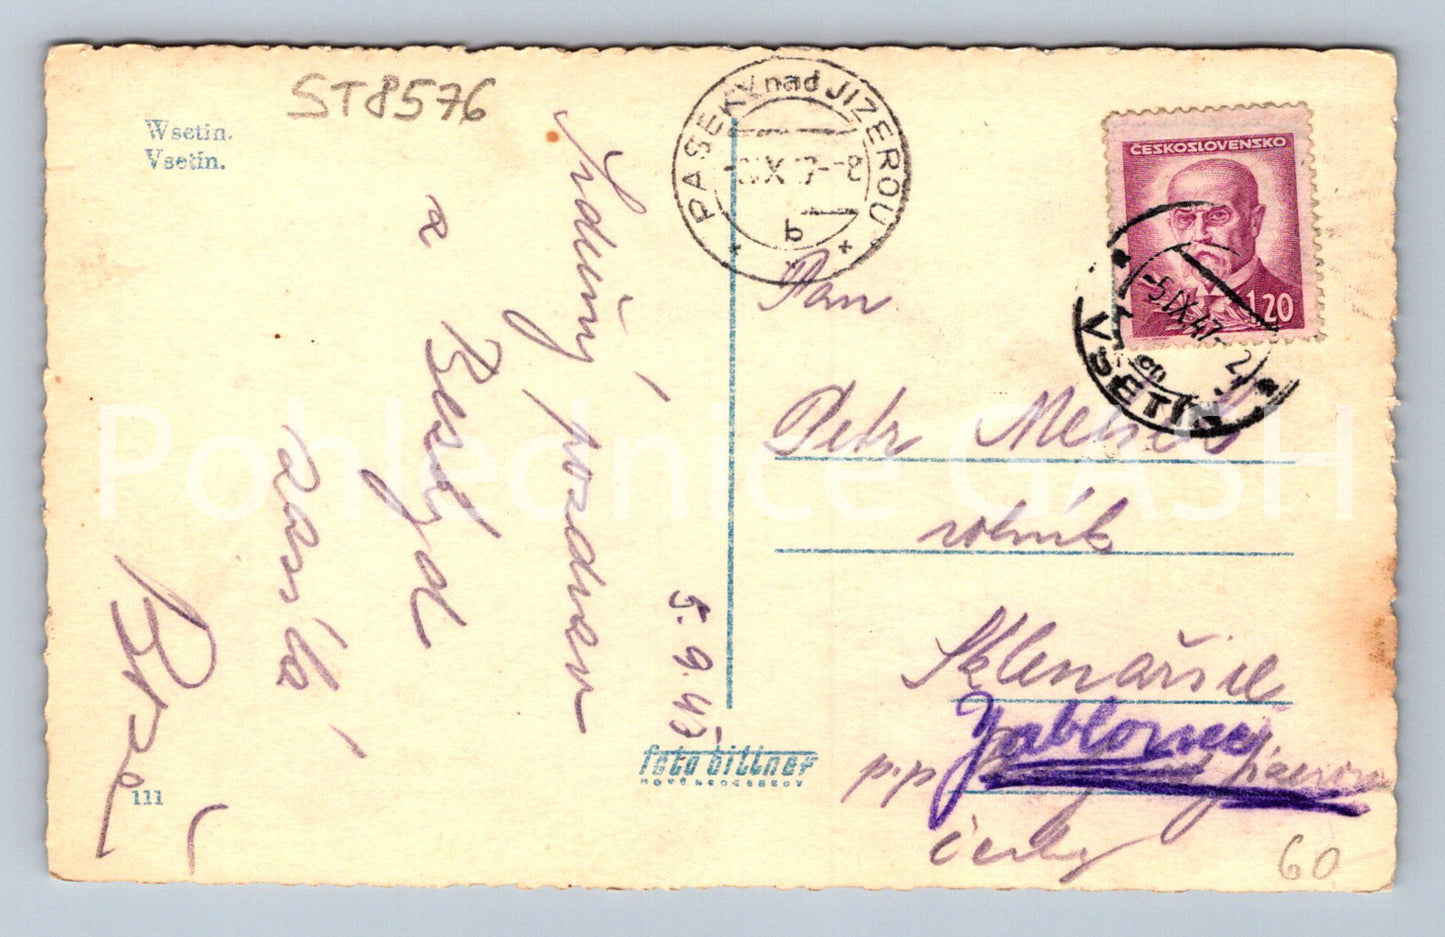 ST8576
Wsetin.
Vsetin.
Srdečný pozdrav
z Beskyd
zasílá
5.9.47
PASEKY nad JIZEROU
IX 47-8
b
ČESKOSLOVENSKO
1,20
-5.IX.47-
VSETÍN
Pan
Petr
rolník
Sklenařice
Jablonec
p.p. Jizerou
Čechy
foto bittner
111
60
Pohlednice GASH